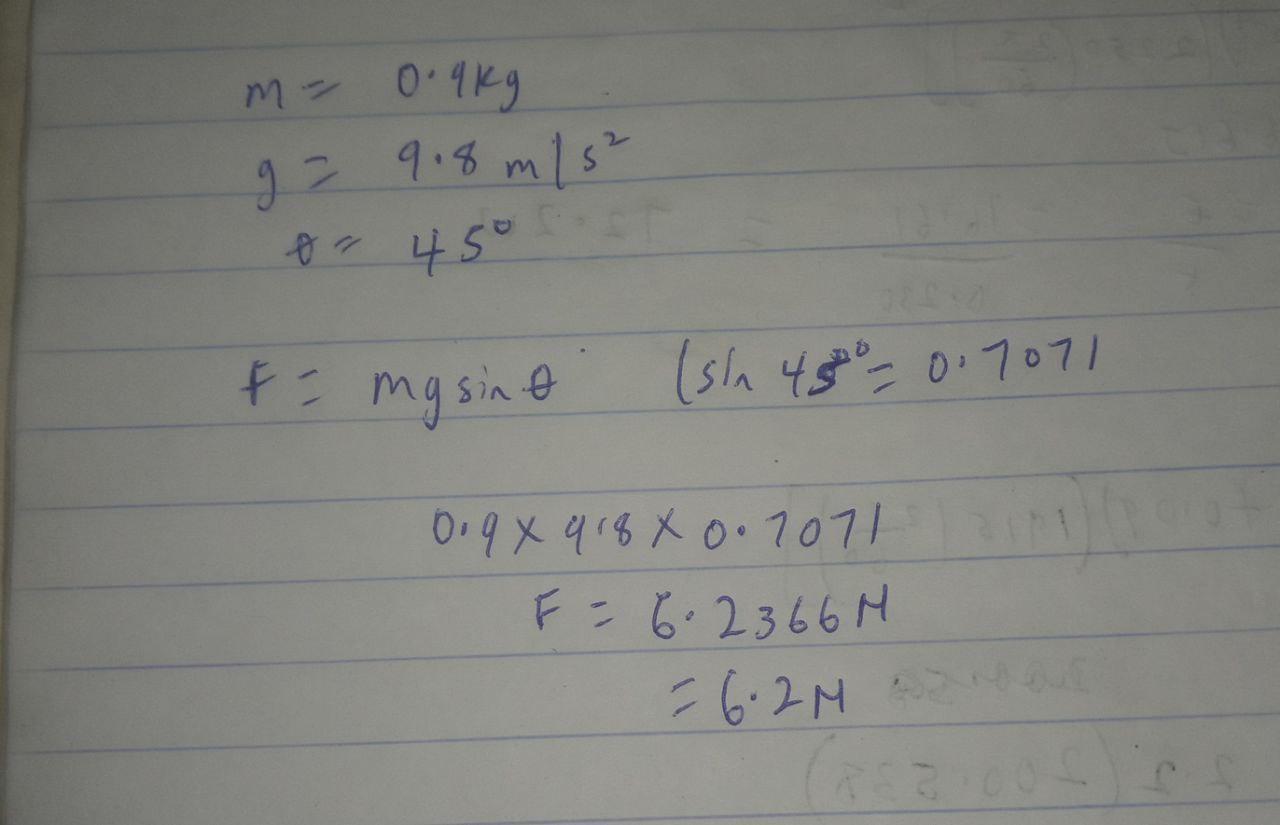 m = 0.9kg
g = 9.8 m/s²
θ = 45°
F = mg sin θ (sin 45° = 0.7071
0.9 x 9.8 x 0.7071
F = 6.2366N
= 6.2N